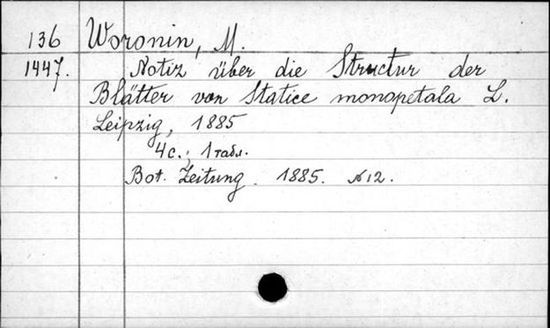 136 Woronin, M.
1447. Notiz über die Structur der
Blätter von Statice monopetala L.
Leipzig, 1885
4 c.; 1 табл.
Bot. Zeitung. 1885. N 12.